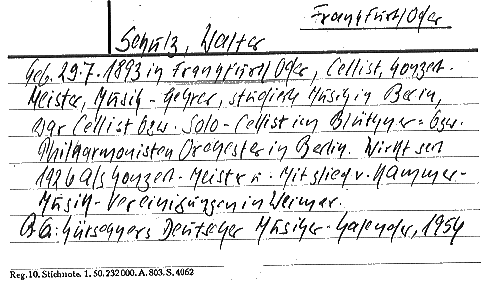 Frankfurt/Oder
Schulz, Walter
Geb. 29.7.1893 in Frankfurt/Oder, Cellist, Konzert-
Meister, Musik-Lehrer, studierte Musik in Berlin,
War Cellist bzw. Solo-Cellist im Blüthner- bzw.
Philharmonischen Orchester in Berlin. Wirkt seit
1926 als Konzert-Meister u. Mitglied v. Kammer-
Musik-Vereinigungen in Weimar.
BG: Kürschners Deutscher Musiker-Kalender, 1954
Reg. 10. Stichnote. 1. 50. 232 000. A. 803. S. 4062